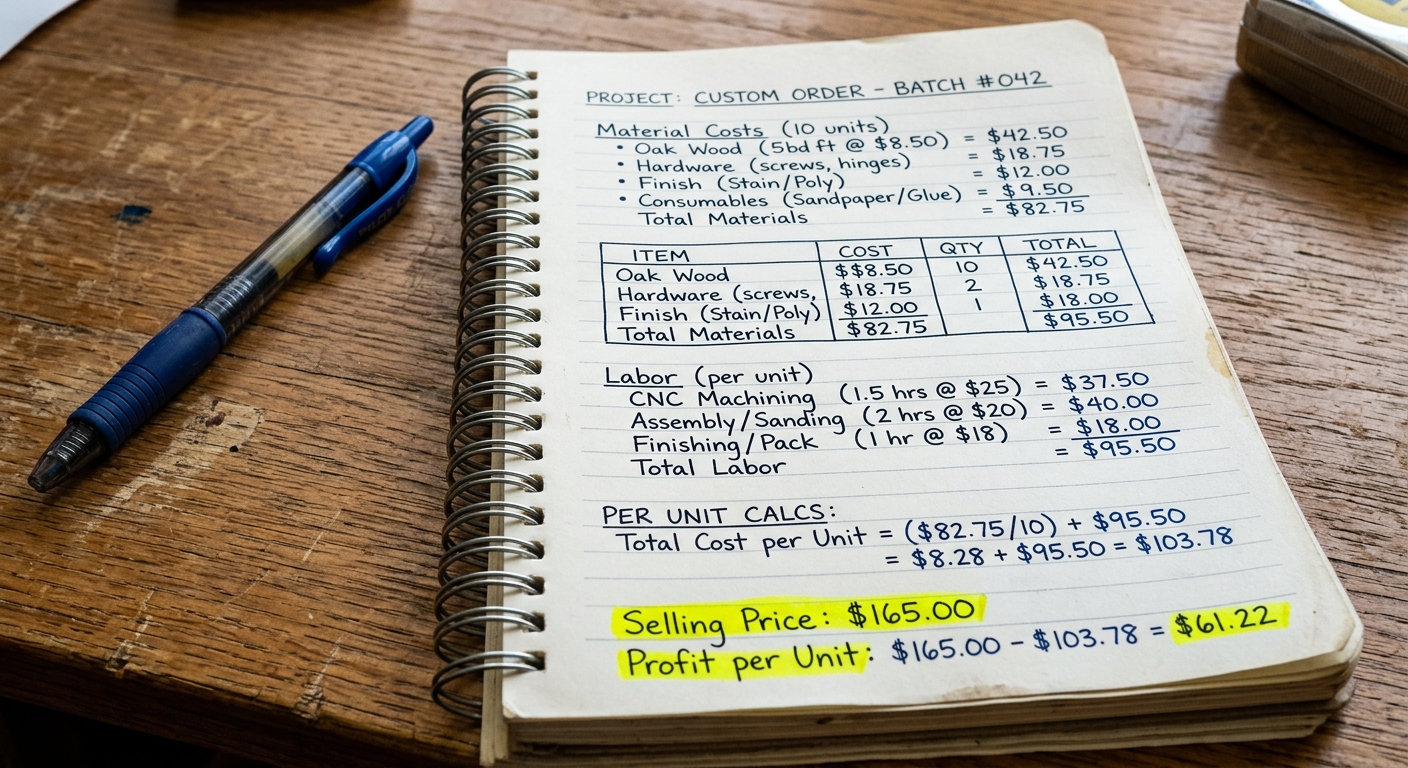 PROJECT: CUSTOM ORDER – BATCH #042
Material Costs (10 units)
• Oak Wood (5bd ft @ $8.50) = $42.50
• Hardware (screws, hinges) = $18.75
• Finish (Stain/Poly) = $12.00
• Consumables (Sandpaper/Glue) = $9.50
Total Materials = $82.75
ITEM COST QTY TOTAL
Oak Wood $$8.50 10 $42.50
Hardware (screws, $18.75 2 $18.75
Finish (Stain/Poly) $12.00 1 $18.00
Total Materials $82.75 $95.50
Labor (per unit)
CNC Machining (1.5 hrs @ $25) = $37.50
Assembly/Sanding (2 hrs @ $20) = $40.00
Finishing/Pack (1 hr @ $18) = $18.00
Total Labor = $95.50
PER UNIT CALCS:
Total Cost per Unit = ($82.75/10) + $95.50
= $8.28 + $95.50 = $103.78
Selling Price: $165.00
Profit per Unit: $165.00 – $103.78 = $61.22